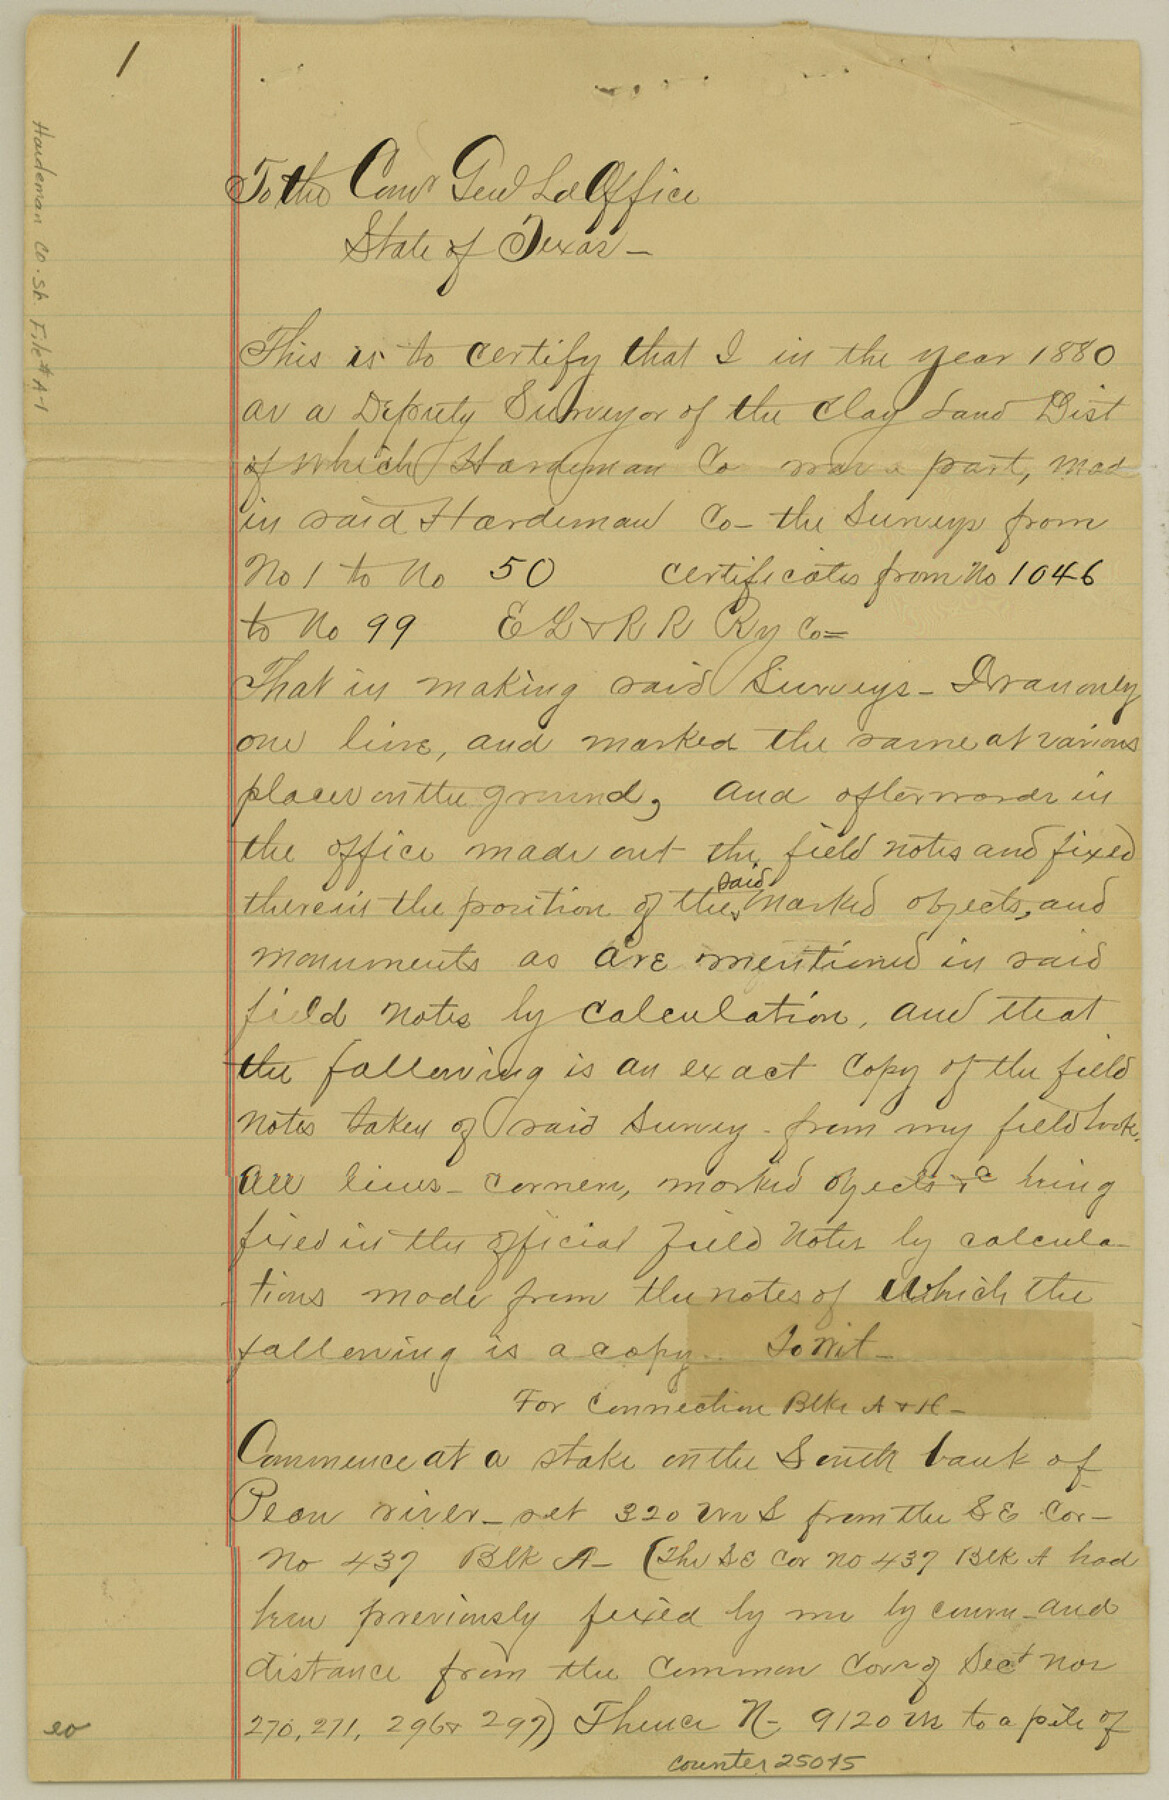 1
Hardeman Co. Sk. File # A-1
To the Comr Genl Ld Office
State of Texas —
This is to certify that I in the year 1880
as a Deputy Surveyor of the Clay Land Dist
of which Hardeman Co was a part, mad
in said Hardeman Co — the Surveys from
No 1 to No 50 certificates from No 1046
to No 99 E L & R R Ry Co =
That in making said Surveys — I ran only
one line, and marked the same at various
places on the ground, and afterwards in
the office made out the field notes and fixed
therein the position of the said marked objects, and
monuments as are mentioned in said
field notes by calculation, and that
the following is an exact copy of the field
notes taken of said Survey - from my field book.
All lines — corners, marked objects &c being
fixed in the official field notes by calcula-
tions made from the notes of which the
following is a copy — To Wit —
For Connection Blks A & H —
Commence at a stake on the South bank of
Pean river — set 320 vrs S from the S E Cor —
No 437 Blk A — (The S E Cor No 437 Blk A had
been previously fixed by me by course and
distance from the common Cor of Sect nos
270, 271, 296 & 297) Thence N — 9120 vrs to a pile of
eo
counter 25045